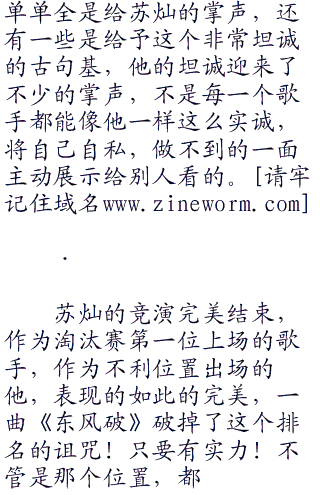 单单全是给苏灿的掌声，还
有一些是给予这个非常坦诚
的古句基，他的坦诚迎来了
不少的掌声，不是每一个歌
手都能像他一样这么实诚，
将自己自私，做不到的一面
主动展示给别人看的。[请牢
记住域名www.zineworm.com]
.
苏灿的竞演完美结束，
作为淘汰赛第一位上场的歌
手，作为不利位置出场的
他，表现的如此的完美，一
曲《东风破》破掉了这个排
名的诅咒！只要有实力！不
管是那个位置，都